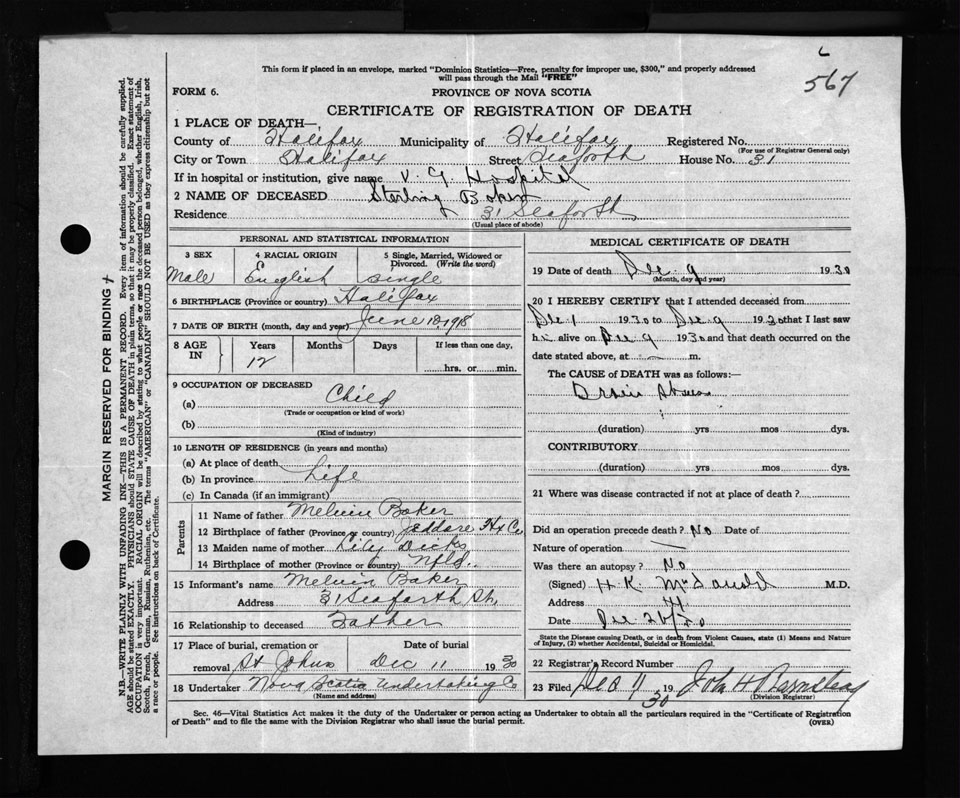 567
This form if placed in an envelope, marked "Dominion Statistics—Free, penalty for improper use, $300," and properly addressed
will pass through the Mail "FREE"
FORM 6. PROVINCE OF NOVA SCOTIA
CERTIFICATE OF REGISTRATION OF DEATH
1 PLACE OF DEATH—
County of Halifax Municipality of Halifax Registered No.
(For use of Registrar General only)
City or Town Halifax Street Seaforth House No. 31
If in hospital or institution, give name V. G. Hospital
2 NAME OF DECEASED Sterling Baker
Residence 31 Seaforth
(Usual place of abode)
PERSONAL AND STATISTICAL INFORMATION
3 SEX 4 RACIAL ORIGIN 5 Single, Married, Widowed or Divorced. (Write the word)
Male English Single
6 BIRTHPLACE (Province or country) Halifax
7 DATE OF BIRTH (month, day and year) June 1918
8 AGE IN Years Months Days If less than one day,
12 hrs. or min.
9 OCCUPATION OF DECEASED
(a) Child
(Trade or occupation or kind of work)
(b)
(Kind of industry)
10 LENGTH OF RESIDENCE (in years and months)
(a) At place of death
(b) In province Life
(c) In Canada (if an immigrant)
Parents
11 Name of father Melvin Baker
12 Birthplace of father (Province or country) Jeddore Hx Co
13 Maiden name of mother Lily Dicks
14 Birthplace of mother (Province or country) Nfld.
15 Informant's name Melvin Baker
Address 31 Seaforth St.
16 Relationship to deceased Father
17 Place of burial, cremation or removal St Johns Date of burial Dec 11 1930
18 Undertaker Nova Scotia Undertaking Co
(Name and address)
MEDICAL CERTIFICATE OF DEATH
19 Date of death Dec. 9 1930
(Month, day and year)
20 I HEREBY CERTIFY that I attended deceased from
Dec 1 1930 to Dec 9 1930 that I last saw
h alive on Dec 9 1930 and that death occurred on the
date stated above, at m.
The CAUSE of DEATH was as follows:—
Brain
(duration) yrs mos dys.
CONTRIBUTORY
(duration) yrs mos dys.
21 Where was disease contracted if not at place of death?
Did an operation precede death? No Date of
Nature of operation —
Was there an autopsy? No
(Signed) H. K. M.D.
Address
Date Dec 26/30
State the Disease causing Death, or in death from Violent Causes, state (1) Means and Nature
of Injury, (2) whether Accidental, Suicidal or Homicidal.
22 Registrar's Record Number
23 Filed Dec 11 1930 John H
(Division Registrar)
Sec. 46—Vital Statistics Act makes it the duty of the Undertaker or person acting as Undertaker to obtain all the particulars required in the "Certificate of Registration
of Death" and to file the same with the Division Registrar who shall issue the burial permit.
(OVER)
MARGIN RESERVED FOR BINDING
N.B.—WRITE PLAINLY WITH UNFADING INK—THIS IS A PERMANENT RECORD. Every item of information should be carefully supplied.
AGE should be stated EXACTLY. PHYSICIANS should STATE CAUSE OF DEATH in plain terms, so that it may be properly classified. Exact statement of
OCCUPATION is very important. RACIAL ORIGIN will be described by stating to what people or race the deceased person belonged, whether English, Irish,
Scotch, French, German, Russian, Ruthenian, etc. The terms "AMERICAN" or "CANADIAN" SHOULD NOT BE USED as they express citizenship but not
a race or people. See instructions on back of Certificate.